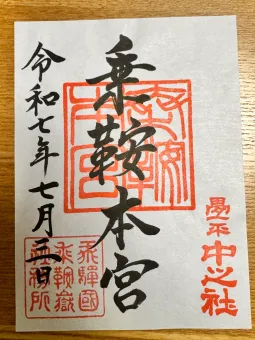 畳平
中之社
乗鞍本宮
令和七年七月 日
飛驒國
乗鞍嶽
社務所